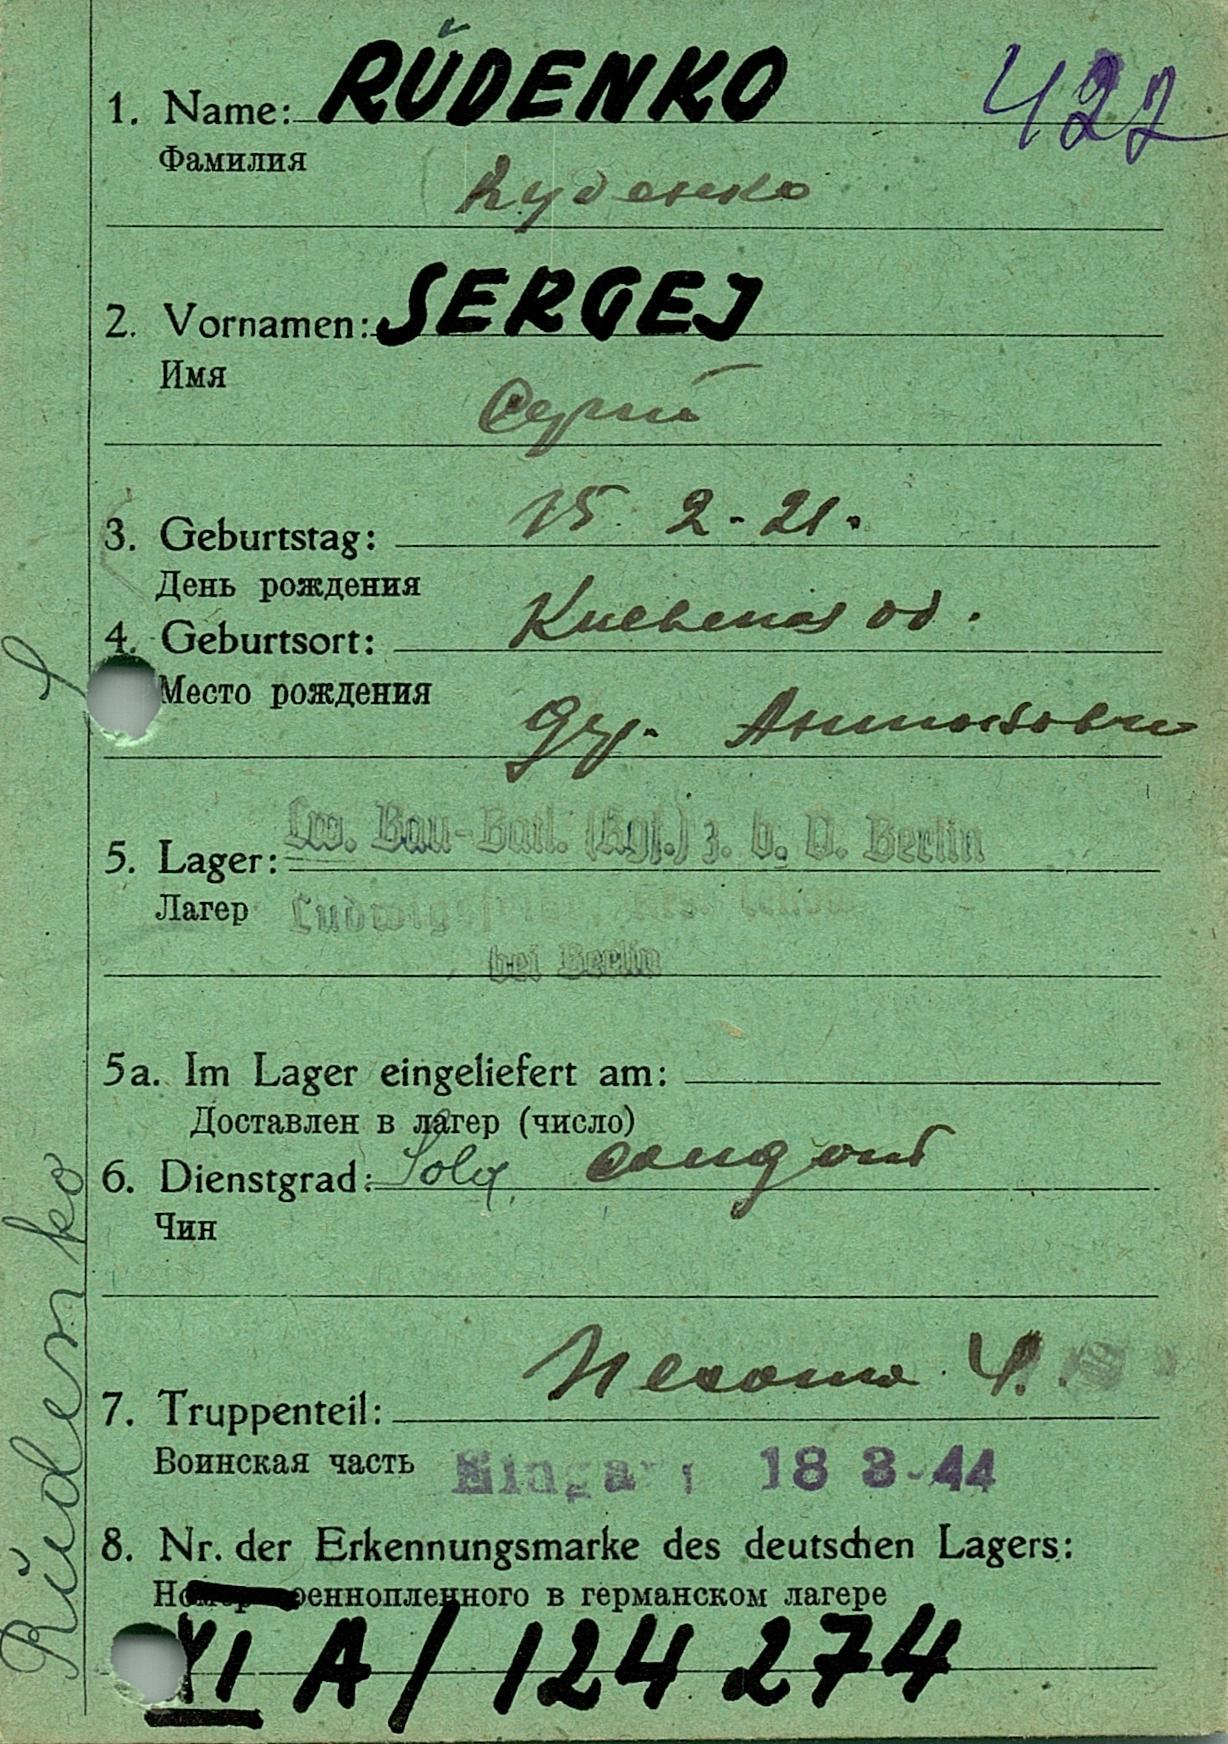 1. Name: RŬDENKO 422
Фамилия
Руденко
2. Vornamen: SERGEJ
Имя
Сергий
3. Geburtstag: 15. 2-21.
День рождения
4. Geburtsort: Киевская об.
Место рождения
дер.
5. Lager: Lw. Bau-Batl. (Kgf.) z. b. V. Berlin
Лагер
bei Berlin
5a. Im Lager eingeliefert am:
Доставлен в лагер (число)
6. Dienstgrad: Sold. солдат
Чин
7. Truppenteil: Ч.
Воинская часть
Einga : 18 3-44
8. Nr. der Erkennungsmarke des deutschen Lagers:
Номер военнопленного в германском лагере
XI A/124 274
Rŭdenko